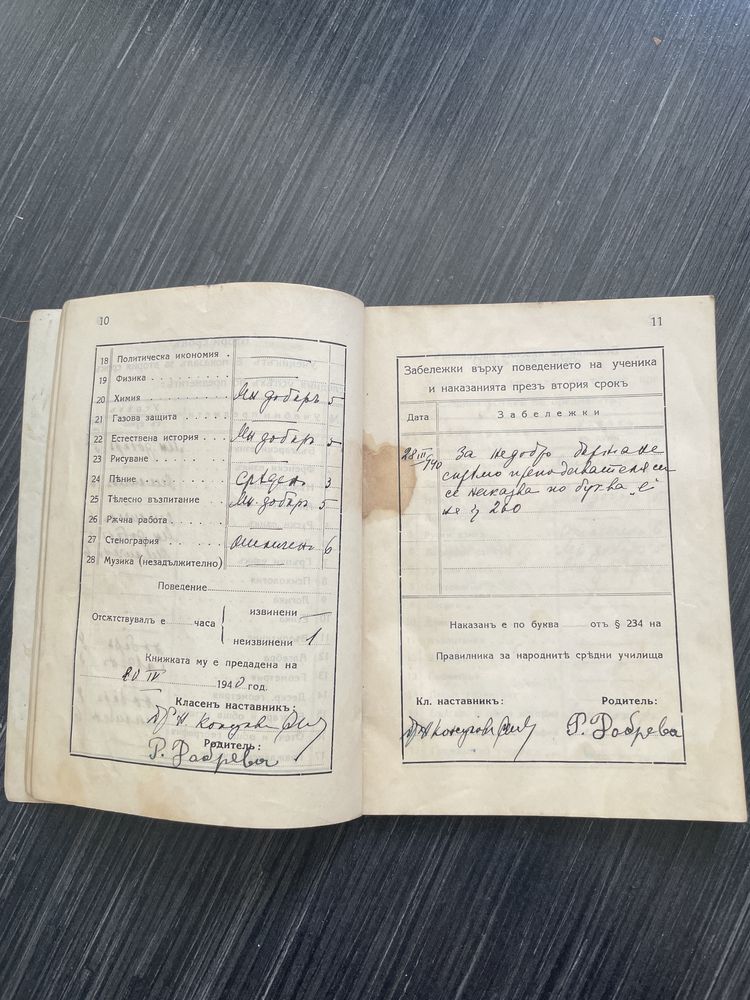 10
18 Политическа икономия .
19 Физика . . . . . . . .
20 Химия . . . . . . . . Мн. добъръ 5
21 Газова защита . . . .
22 Естествена история . . . Мн. добъръ 5
23 Рисуване . . . . . .
24 Пѣние . . . . . . . . Срѣденъ 3
25 Тѣлесно възпитание . . . Мн. добъръ 5
26 Рѫчна работа . . . . .
27 Стенография . . . . . отличенъ 6
28 Музика (незадължително)
Поведение
Отсѫтствувалъ е часа
извинени —
неизвинени 1
Книжката му е предадена на
20 IV 1940 год.
Класенъ наставникъ:
Родитель:
Р. Добрева
11
Забележки върху поведението на ученика
и наказанията презъ втория срокъ
Дата Забележки
28 III 940 За недобро държане
спрямо преподавателя си
се наказва по буква „е“
на § 240
Наказанъ е по буква отъ § 234 на
Правилника за народнитѣ срѣдни училища
Кл. наставникъ: Родитель:
Р. Добрева